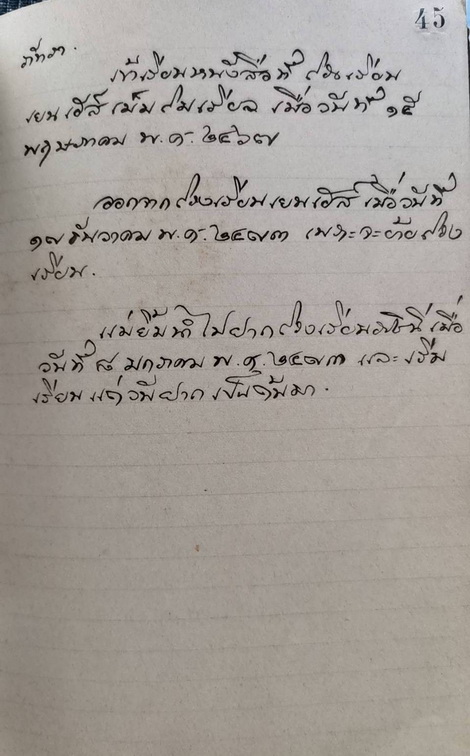 45
ภัทรา.
เข้าเรียนหนังสือที่โรงเรียน
เยนเฮส์เม็มโมเรียล เมื่อวันที่ ๑๕
พฤษภาคม พ.ศ. ๒๔๖๗
ออกจากโรงเรียนเยนเฮส์ เมื่อวันที่
๑๗ ธันวาคม พ.ศ. ๒๔๗๓ เพราะจะย้ายโรง
เรียน.
แม่ยิ้มนำไปฝากโรงเรียนราชินี เมื่อ
วันที่ ๘ มกราคม พ.ศ. ๒๔๗๓ และเริ่ม
เรียนแต่วันฝากเป็นต้นมา.